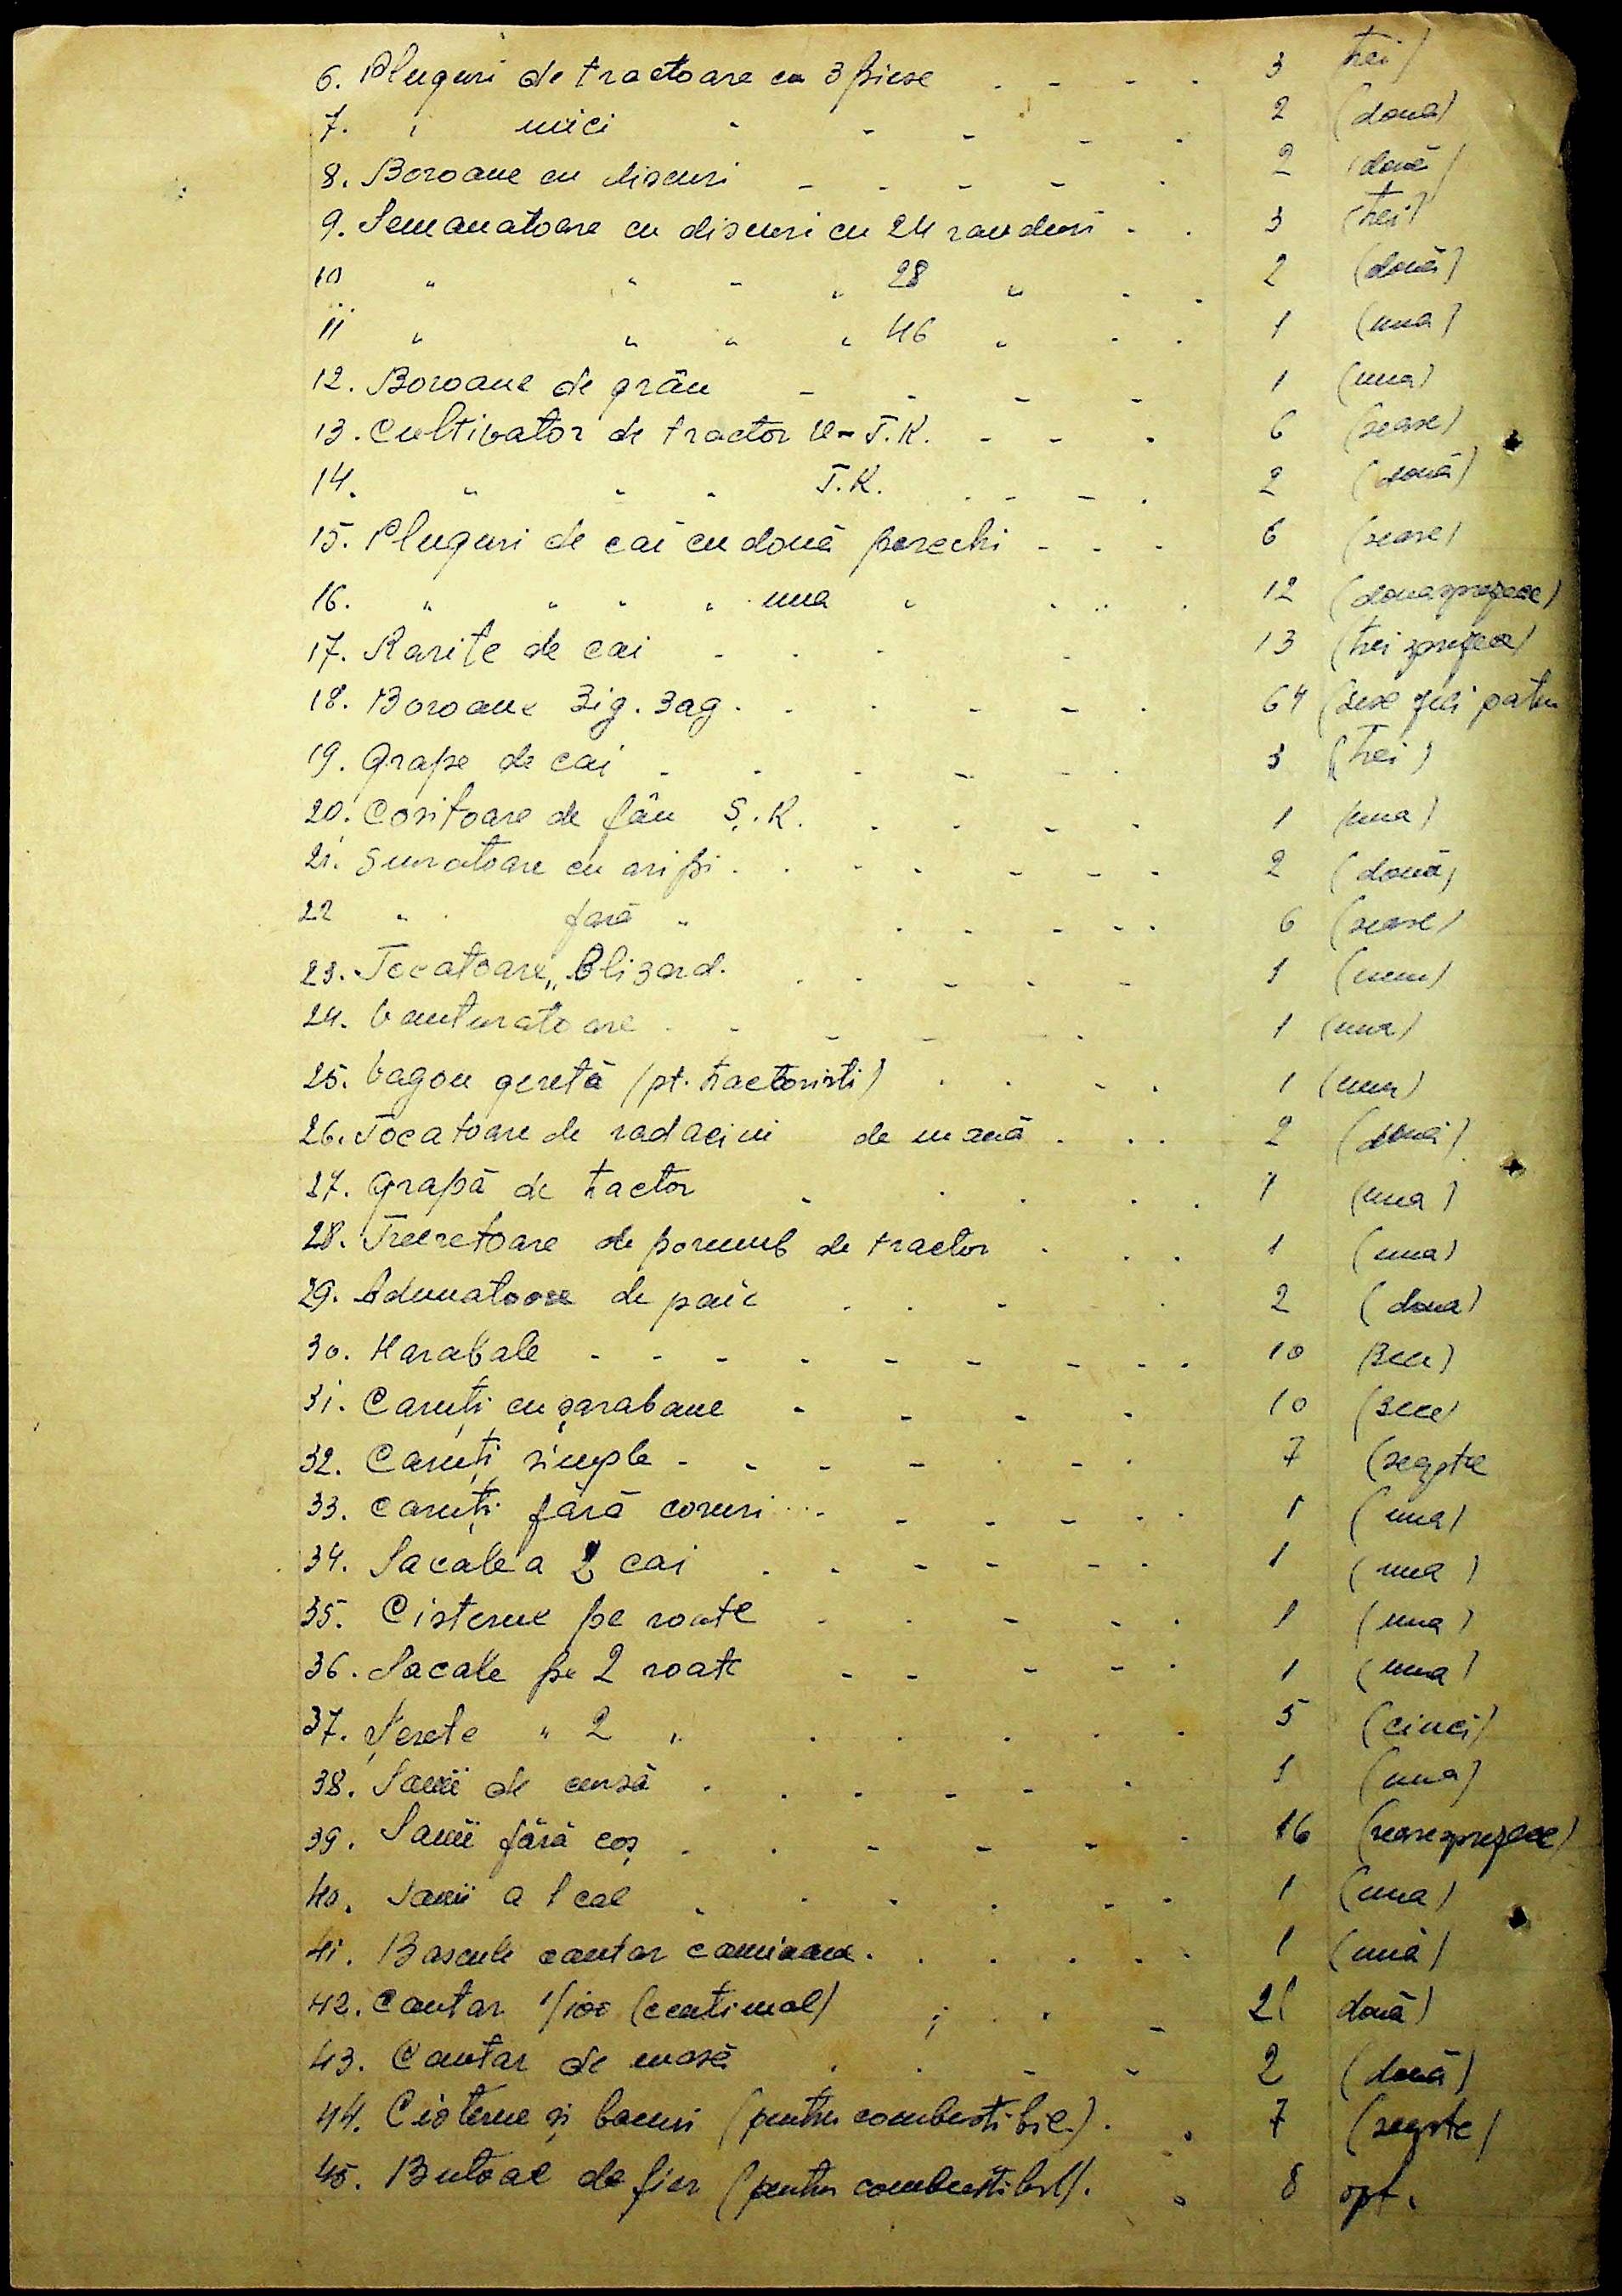 6. Pluguri de tractoare cu 3 piese . - - - . 3 trei)
7. " mici " - - - . 2 (doua)
8. Boroane cu discuri - - - - . 2 (două)
9. Semanatoare cu discuri cu 24 randuri - . 3 (trei)
10 " " " " 28 " . . 2 (două)
11 " " " " 46 " . . 1 (una)
12. Boroane de grâu - - - - 1 (una)
13. Cultivator de tractor U-T.K. - - - 6 (sease)
14. " " " T.K. . - - . 2 (două)
15. Pluguri de cai cu două perechi - - - 6 (sease)
16. " " " " una " . .. . 12 (douasprezece)
17. Rarițe de cai - . - - 13 (treisprezece)
18. Boroane Zig. Zag. - . - - . 64 (sese zeci patru
19. Grape de cai - . - - - . 3 (trei)
20. Cositoare de fân S.K. . . - - 1 (una)
21. Sunatoare cu aripi . . - . - - - - 2 (două)
22 " fară " . - - - . 6 (sease)
23. Tocatoare „Blizard. . . - . - 1 (unu)
24. Vanturatoare . - - - . 1 (una)
25. Vagon geretă (pt. tractoristi) . . - . 1 (una)
26. Tocatoare de radacini de mană . . . 2 (două)
27. Grapă de tractor . . . . . 1 (una)
28. Treeretoare de porumb de tractor . . . 1 (una)
29. Adunatoare de paie . . - . 2 (doua)
30. Harabale - - - - - - - - - 10 (zece)
31. Caruți cu șarabane - - - - 10 (zece)
32. Caruți simple - - - - . - . 7 (seapte
33. Caruți fără coruri . . - - - - . . 1 (una)
34. Sacale a 2 cai . - - - - - 1 (una)
35. Cisterne pe roate . . - - . 1 (una)
36. Sacale pe 2 roate - - - - . 1 (una)
37. " 2 " . . . - . 5 (cinci)
38. Sanii de cursă . . - - - . 1 (una)
39. Sanii fără coș . . - - - . 16 (seasesprezece)
40. Sanii a 1 cal . . . . - - 1 (una)
41. Bascule cantar . . . . . . 1 (ună)
42. Cantar 1/100 (centimal) ; . . - 2( două)
43. Cantar de masă . . - - 2 (două)
44. Cisterne și bacuri (pentru combustibil) . . 7 (seapte)
45. Butoae de fier (pentru combustibil). . 8 opt.